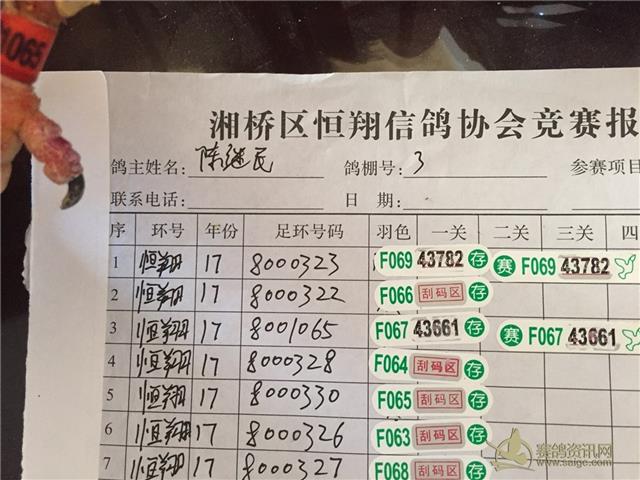 1065
湘桥区恒翔信鸽协会竞赛报
鸽主姓名: 陈继民 鸽棚号: 3 参赛项目
联系电话: 日 期:
序 环号 年份 足环号码 羽色 一关 二关 三关 四
1 恒翔 17 8000323 F069 43782 存 赛 F069 43782
2 恒翔 17 8000322 F066 刮码区 存
3 恒翔 17 8001065 F067 43661 存 赛 F067 43661
4 恒翔 17 8000328 F064 刮码区 存
5 恒翔 17 8000330 F065 刮码区 存
6 恒翔 17 8000326 F063 刮码区 存
7 恒翔 17 8000327 F068 刮码区 存
赛鸽资讯网
www.saige.com